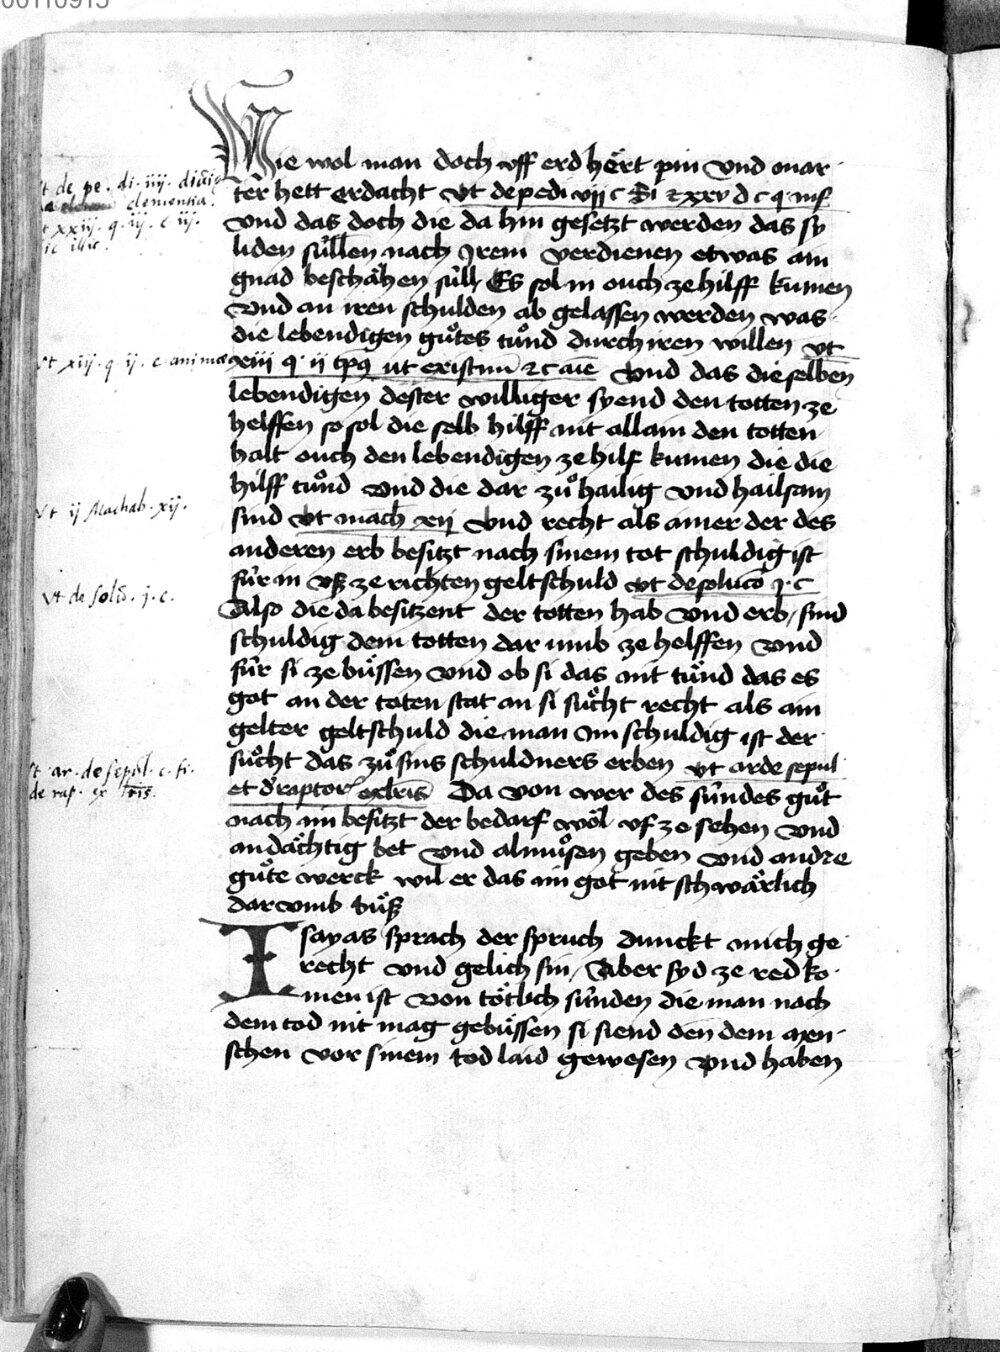 00110915
Wie wol man doch vff erd hërt pin vnd mar
ter hett erdacht vt de pe di vij c Si & xxv d c q inf
vnd das doch die da hin gesetzt werden das sy
liden süllen nach Irem verdienen etwas ain
gnad beschähen süll Es sol in ouch ze hilff kumen
vnd an iren schulden ab gelassen werden was
die lebendigen gůtes tůnd durch iren willen vt
xiii q ij tpq ut existimu & c aie vnd das die selben
lebendigen dester williger syend den totten ze
helffen so sol die selb hilff nit allain den totten
halt ouch den lebendigen ze hilf kumen die die
hilff tůnd vnd die dar zů hailig vnd hailsam
sind vt mach xij vnd recht als ainer der des
anderen erb besitzt nach sinem tot schuldig ist
für in vß ze richten geltschuld vt de soluco j. c
Also die da besitzent der totten hab vnd erb / sind
schuldig dem totten dar umb ze helffen vnd
für si ze büssen vnd ob si das nit tůnd das es
got an der toten stat an si sůcht recht als ain
gelter geltschuld die man im schuldig ist der
sůcht das zů sins schuldners erben vt ar de sepul
et d raptor ex Da von wer des sündes gůt
nach im besitzt der bedarf wöl vf ze sehen vnd
andächtig bet vnd almůsen geben vnd andre
gůte werck wil er das im got nit schwärlich
dar vmb bůß
Isayas sprach der spruch dunckt mich ge
recht vnd gelich sin / Aber syd ze red ko
men ist von tötlich sünden die man nach
dem tod nit mag gebüssen si siend den dem men
schen vor sinem tod laid gewesen vnd haben
Vt de pe. di. iiij.
clementia.
xxiij. q. ij. c. ij.
Vt xiij. q. ij. c. animae
Vt ij Machab. xij.
vt de solu. j. c.
Vt ar. de sepul. c. fi.
de rap.